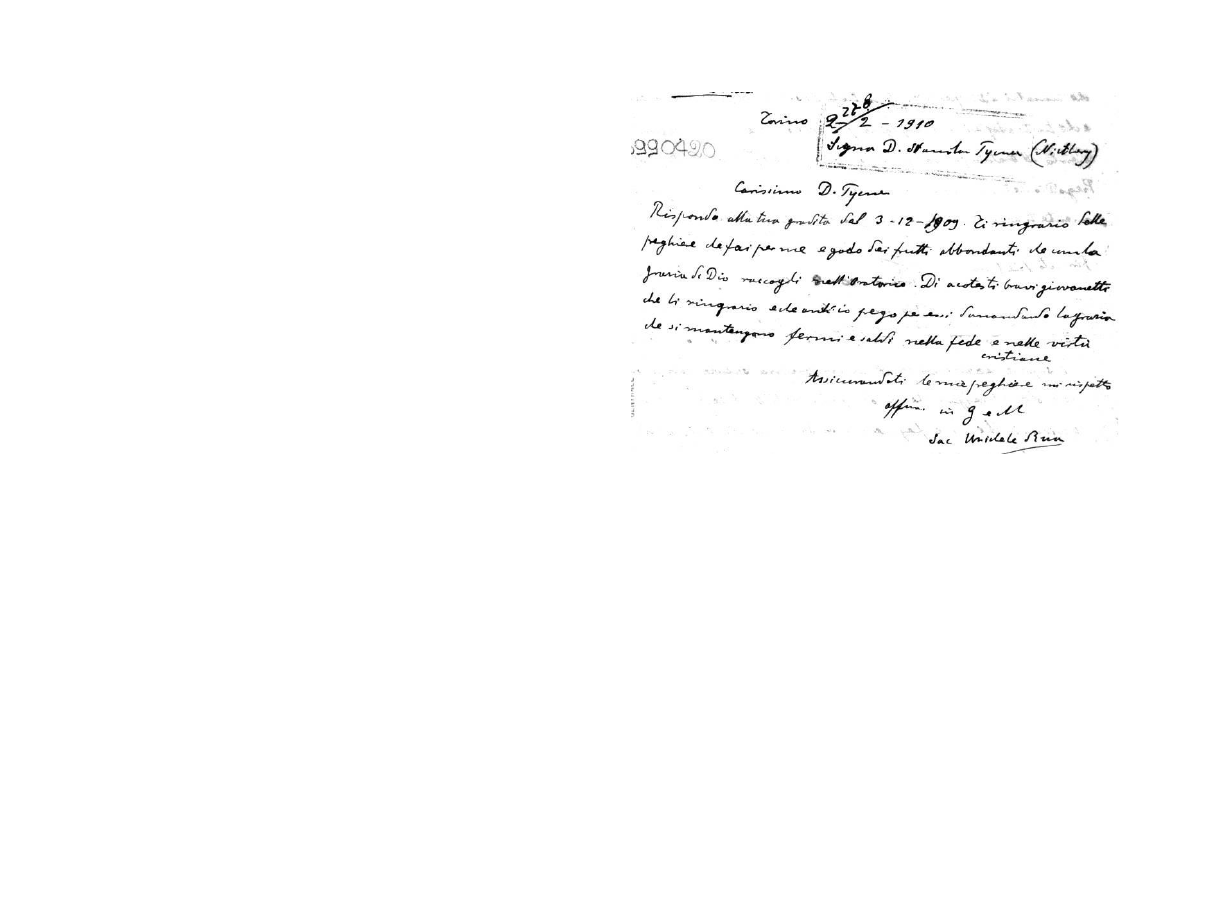 Torino 2-2-1910
228
Signor D. Tyrner
3990420
Carissimo D. Tyrner
Rispondo alla tua gradita dal 3-12-1909. Ti ringrazio delle
preghiere che fai per me e godo dei frutti abbondanti che con la
grazia di Dio raccogli nell'oratorio. Di a cotesti bravi giovanetti
che li ringrazio e che anch'io prego per essi domandando la grazia
che si mantengano fermi e saldi nella fede e nelle virtù
cristiane
Assicurandoti le mie preghiere mi ripeto
aff.mo in G e M
Sac Michele Rua